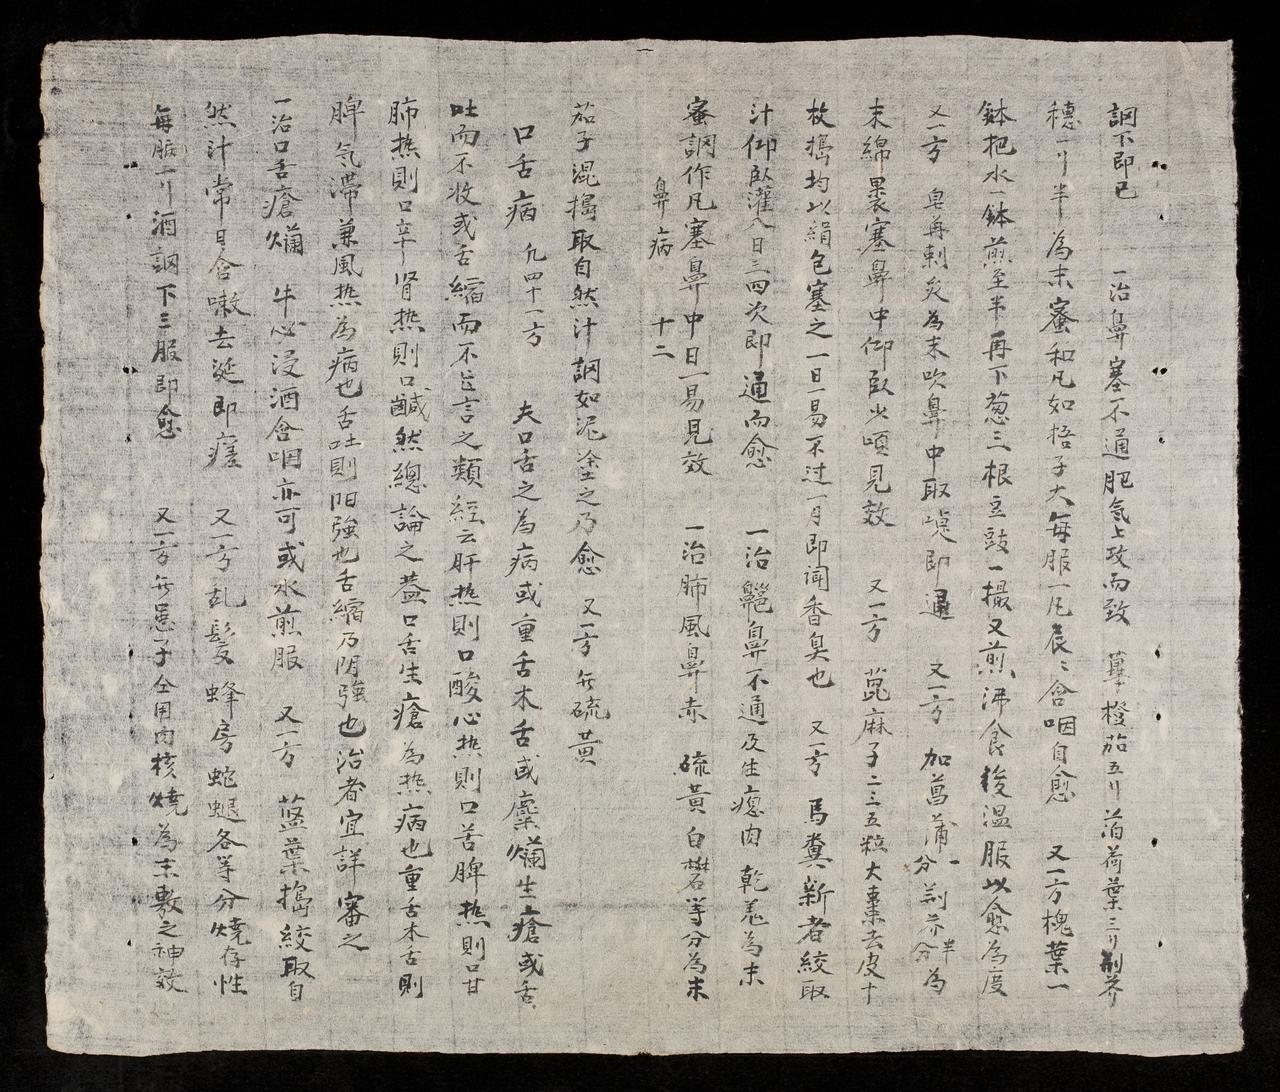 調下即已 一治鼻塞不通肥氣上攻而致 蓽橙茄五刂薄荷葉三刂荊芥
穗一刂半為末蜜和凡如梧子大每服一凡辰〻含咽自愈 又一方槐葉一
鉢把水一鉢煎至半再下葱三根豆豉一撮又煎沸食後溫服以愈為度
又一方 皂莢刺炙為末吹鼻中取嚏即通 又一方 加菖蒲一分荊芥半分為
末綿裹塞鼻中仰臥少頃見效 又一方 萞麻子二三五粒大棗去皮十
枚搗均以絹包塞之一日一易不过一月即闻香臭也 又一方 馬糞新者絞取
汁仰臥灌入日三四次即通而愈 一治齆鼻不通及生瘜肉 乾羗為末
蜜調作凡塞鼻中日一易見效 一治肺風鼻赤 硫黄白礬等分為末
鼻病 十二
茄子混搗取自然汁調如泥塗之乃愈 又一方無硫黄
口舌病 凢四十一方 夫口舌之為病或重舌木舌或糜爛生瘡或舌
吐而不收或舌縮而不能言之類経云肝热則口酸心热則口苦脾热則口甘
肺热則口辛肾热則口鹹然總論之葢口舌生瘡為热病也重舌木舌則
脾氣滯兼風热為病也舌吐則阳强也舌縮乃阴强也治者宜詳審之
一治口舌瘡爛 牛心浸酒含咽亦可或水煎服 又一方 藍葉搗絞取自
然汁常日含嗽去涎即瘥 又一方乱髮蜂房蛇蜕各等分燒存性
每服一刂酒調下三服即愈 又一方無患子全用肉核燒為末敷之神效